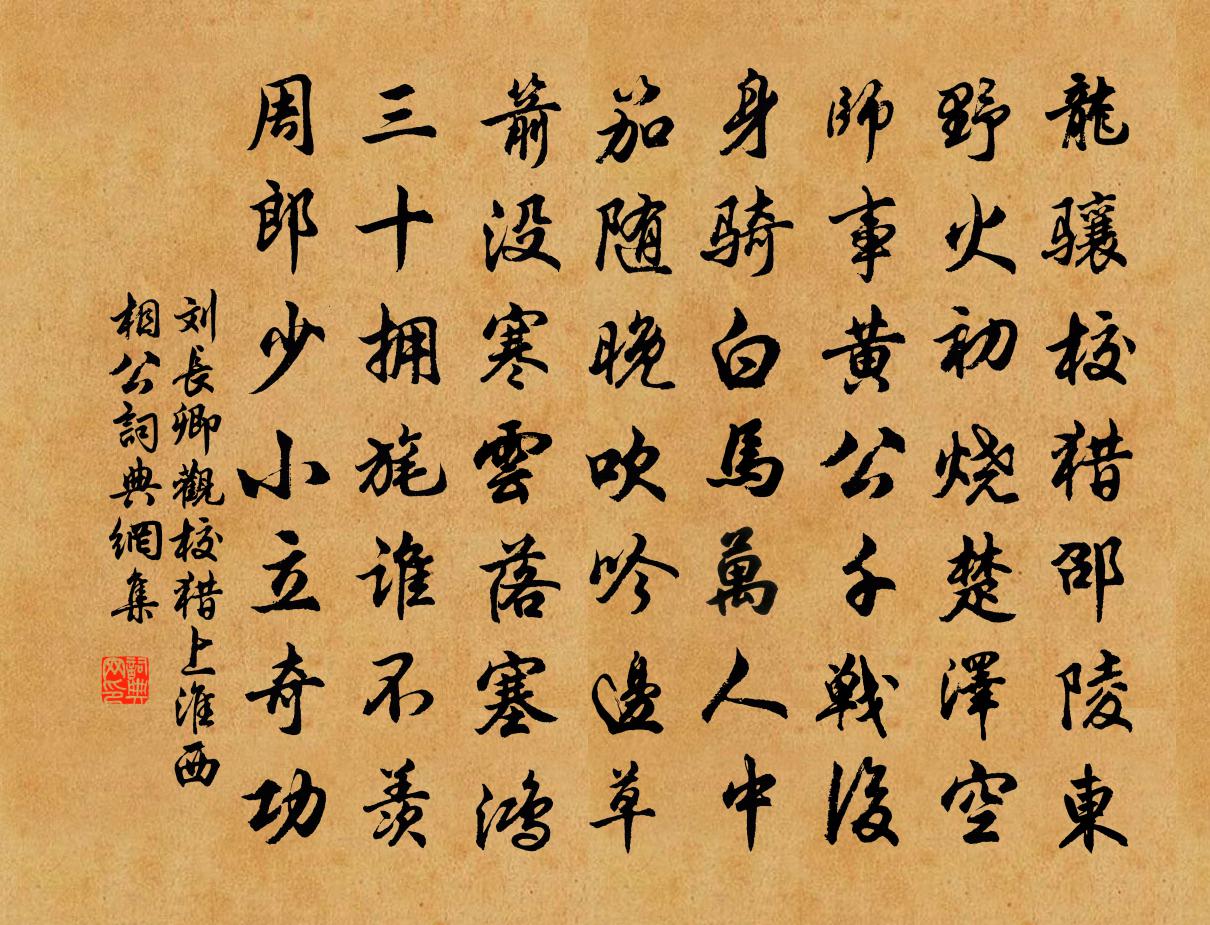 龍驤校猎邵陵東
野火初烧楚澤空
師事黄公千戦後
身騎白馬萬人中
笳随晚吹吟邊草
箭没寒雲落塞鴻
三十拥旄谁不羡
周郎少小立奇功
刘長卿觀校猎上淮西
相公詞典網集
詞典
网印